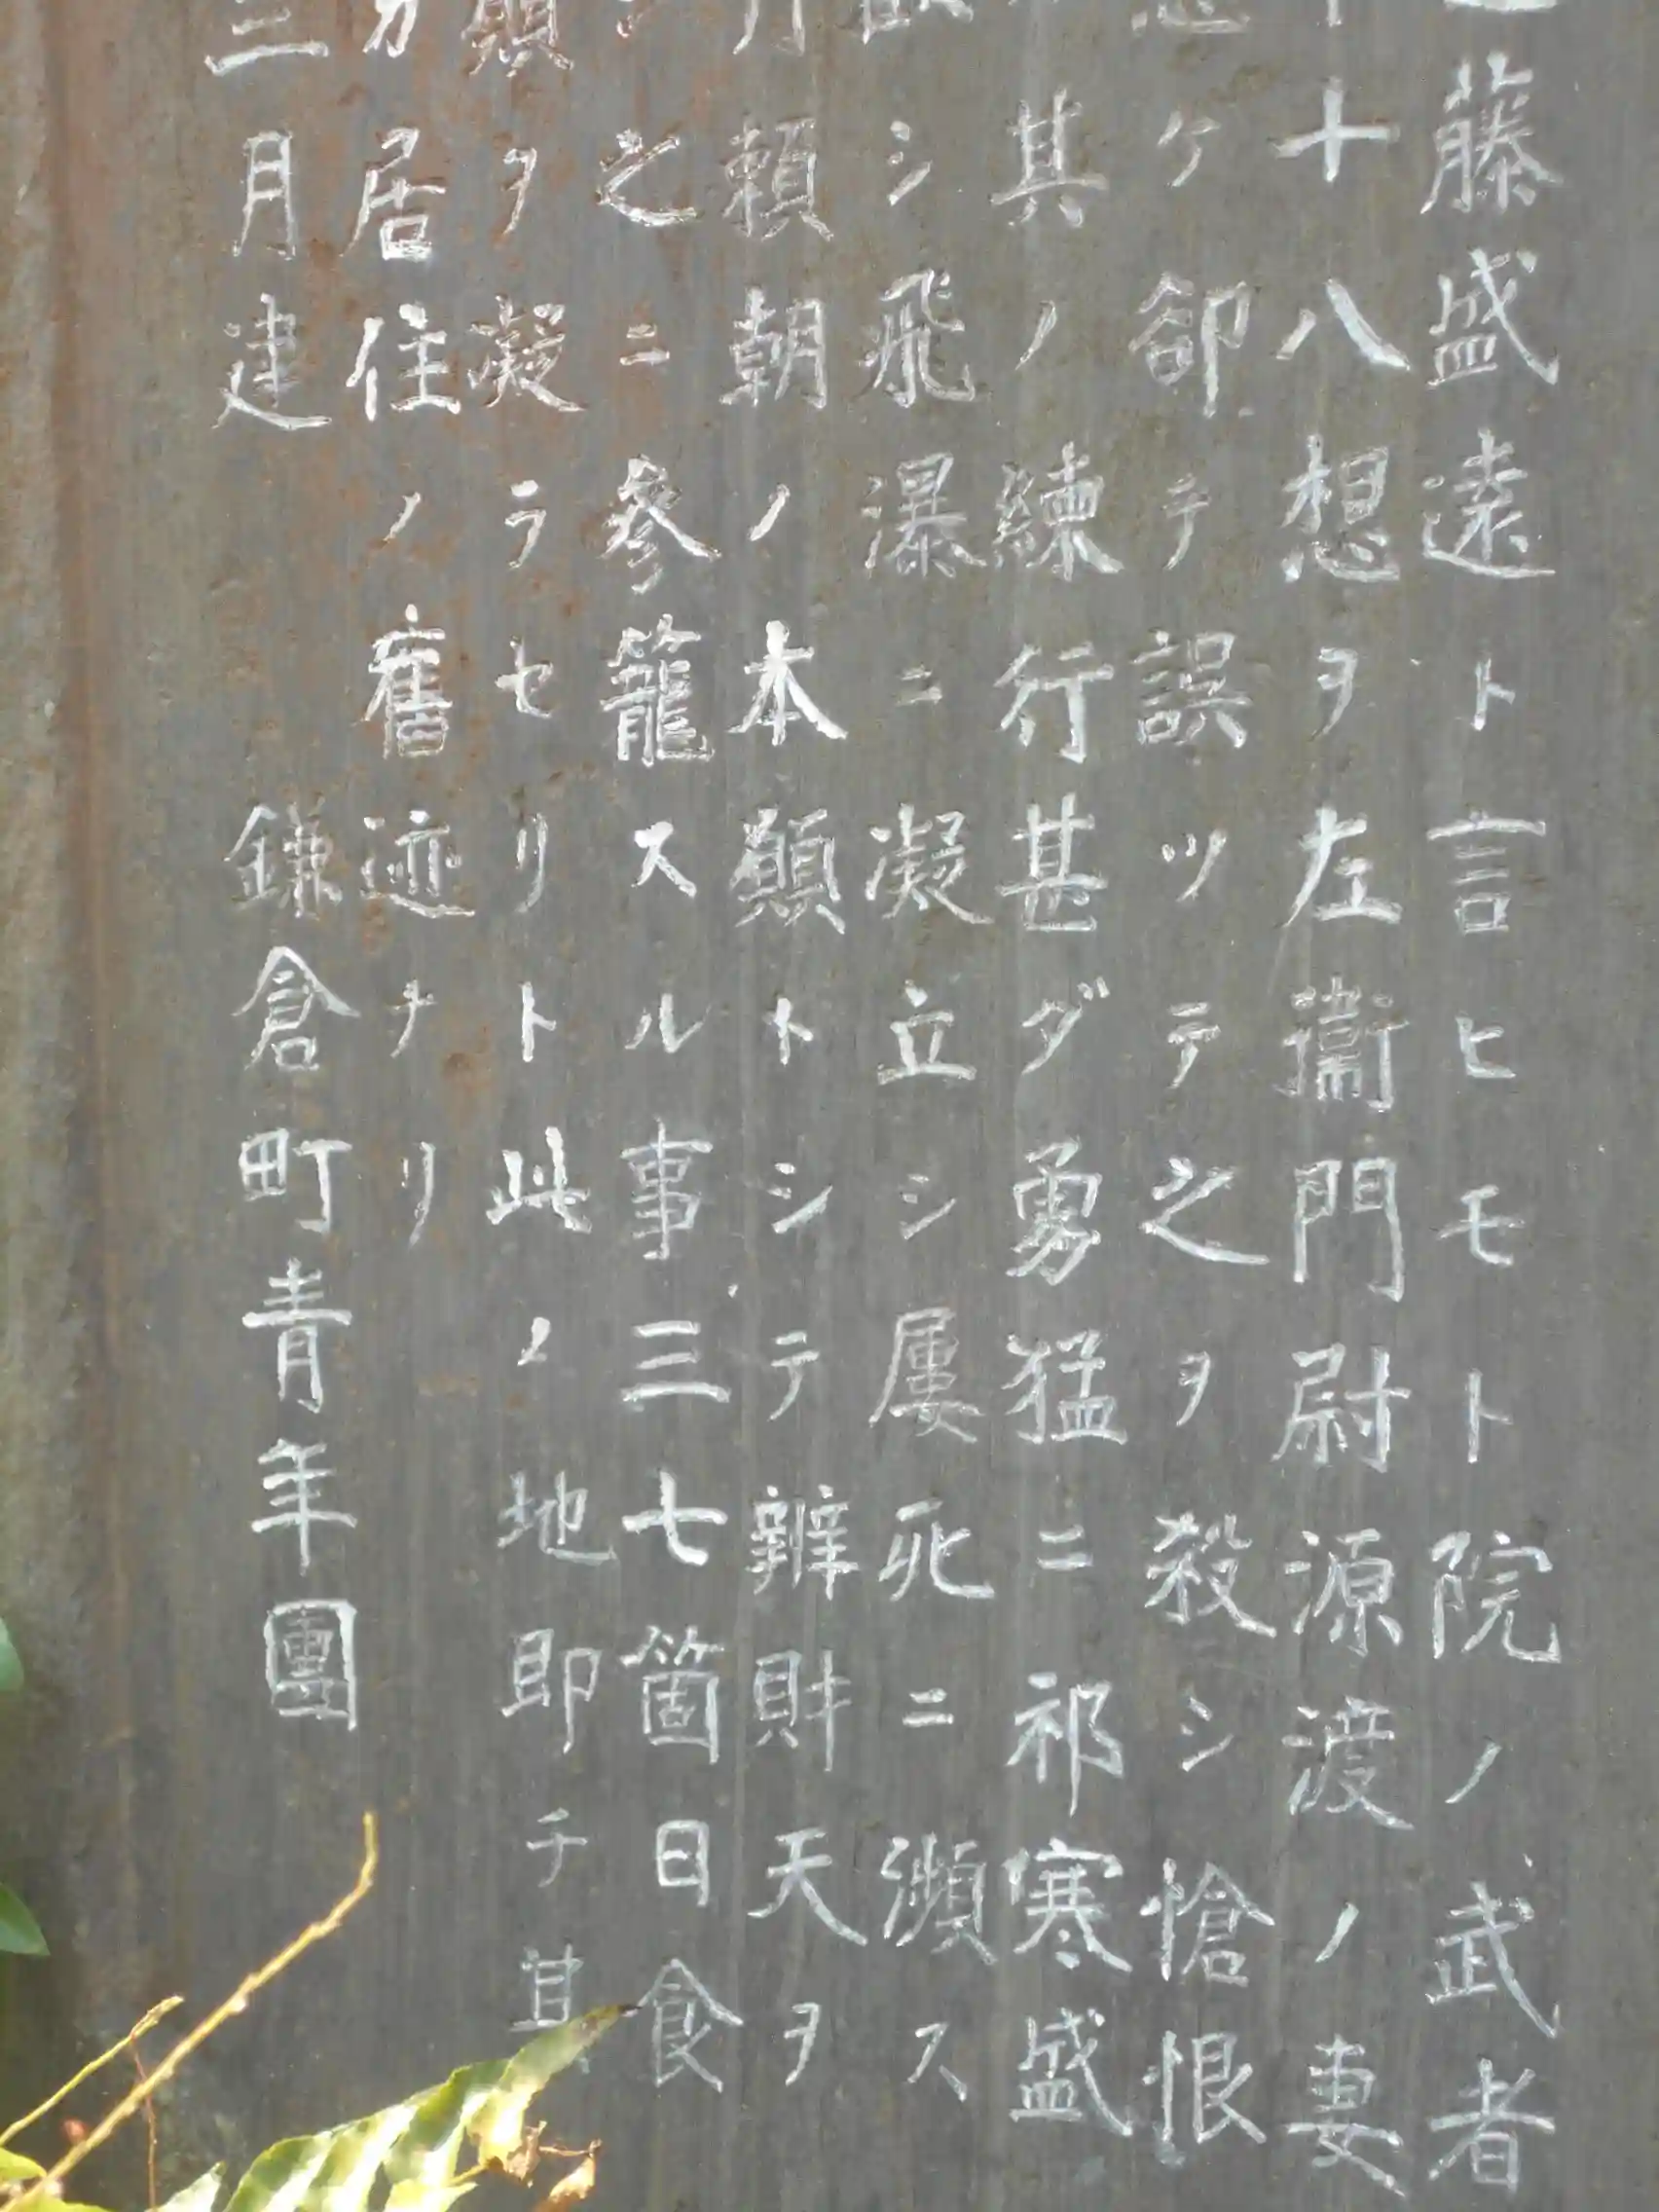 藤盛遠ト言ヒモト院ノ武者
十八想ヲ左衞門尉源渡ノ妻
ケ卻テ誤ツテ之ヲ殺シ愴恨
其ノ練行甚ダ勇猛ニ祁寒盛
シ飛瀑ニ凝立シ屢死ニ瀕ス
頼朝ノ本願トシテ辨財天ヲ
之ニ參籠スル事三七箇日食
願ヲ凝ラセリトト此ノ地即チ其
ガ居住ノ舊迹ナリ
三月建 鎌倉町青年團